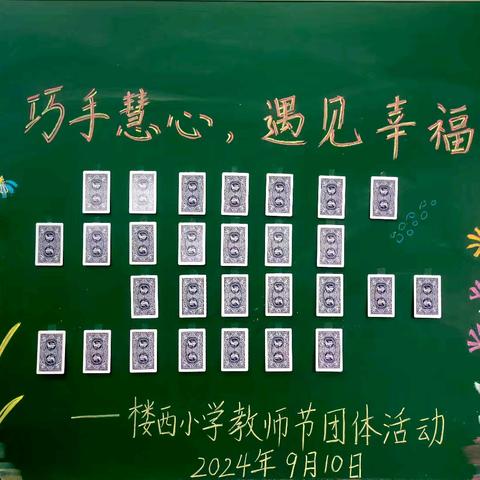 巧手慧心，遇见幸福
——楼西小学教师节团体活动
2024年9月10日